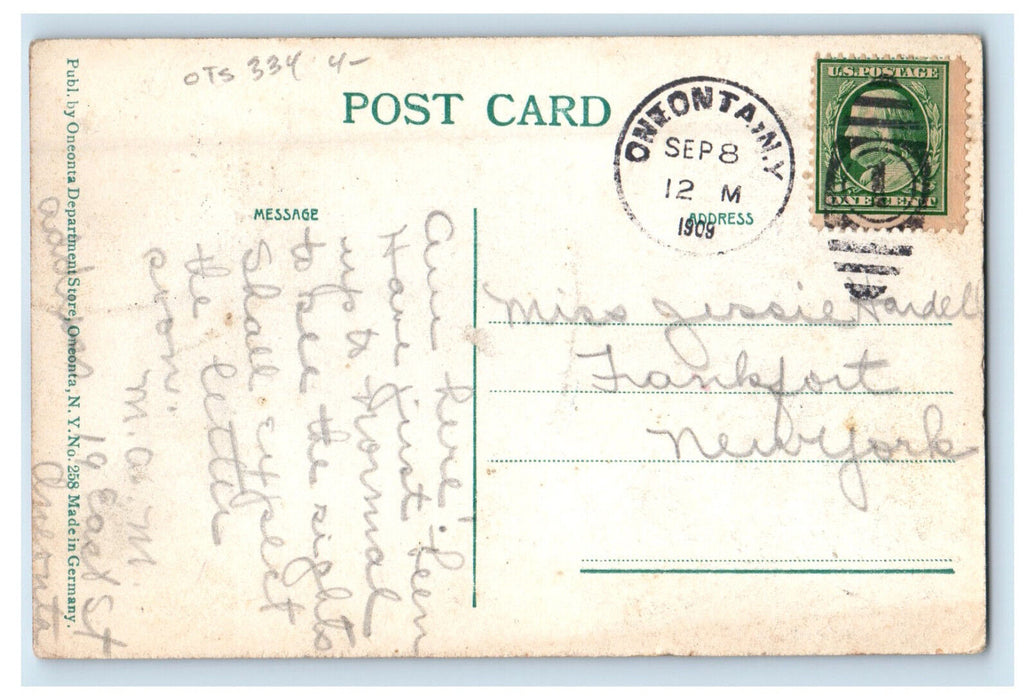 OTS 334 4-
POST CARD
U.S. POSTAGE
ONE CENT
ONEONTA, N.Y.
SEP 8
12 M
1909
1
MESSAGE
ADDRESS
Am here!
Have just been
up to Normal
to see the sights
Shall expect
the letter
soon.
M. W. M.
Address
19 East St
Oneonta
Miss Jessie Hardell
Frankfort
New York
Publ. by Oneonta Department Store, Oneonta, N. Y. No. 258 Made in Germany.